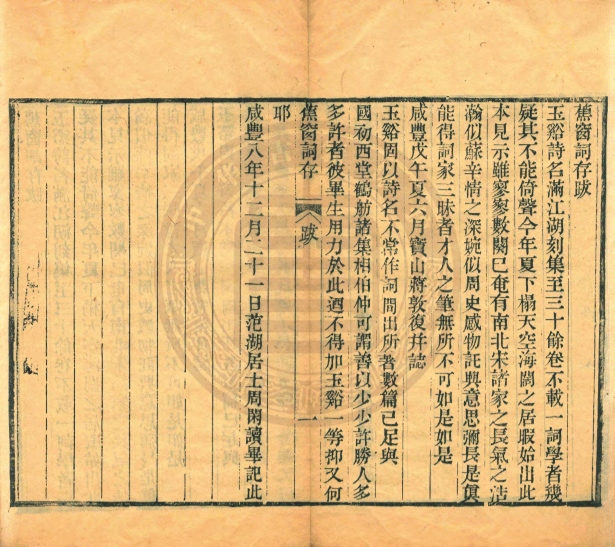 蕉窗詞存跋
玉谿詩名滿江湖刻集至三十餘卷不載一詞學者幾
疑其不能倚聲今年夏下榻天空海闊之居暇始出此
本見示雖寥寥數闋已奄有南北宋諸家之長氣之浩
瀚似蘇辛情之深婉似周史感物託興意思彌長是眞
能得詞家三昧者才人之筆無所不可如是如是
咸豐戊午夏六月寶山蔣敦復幷誌
玉谿固以詩名不常作詞間出所著數篇已足與
國初西堂鶴舫諸集相伯仲可謂善以少少許勝人多
多許者彼畢生用力於此迺不得加玉谿一等抑又何
蕉窗詞存
跋
一
耶
咸豐八年十二月二十一日范湖居士周閑讀畢記此